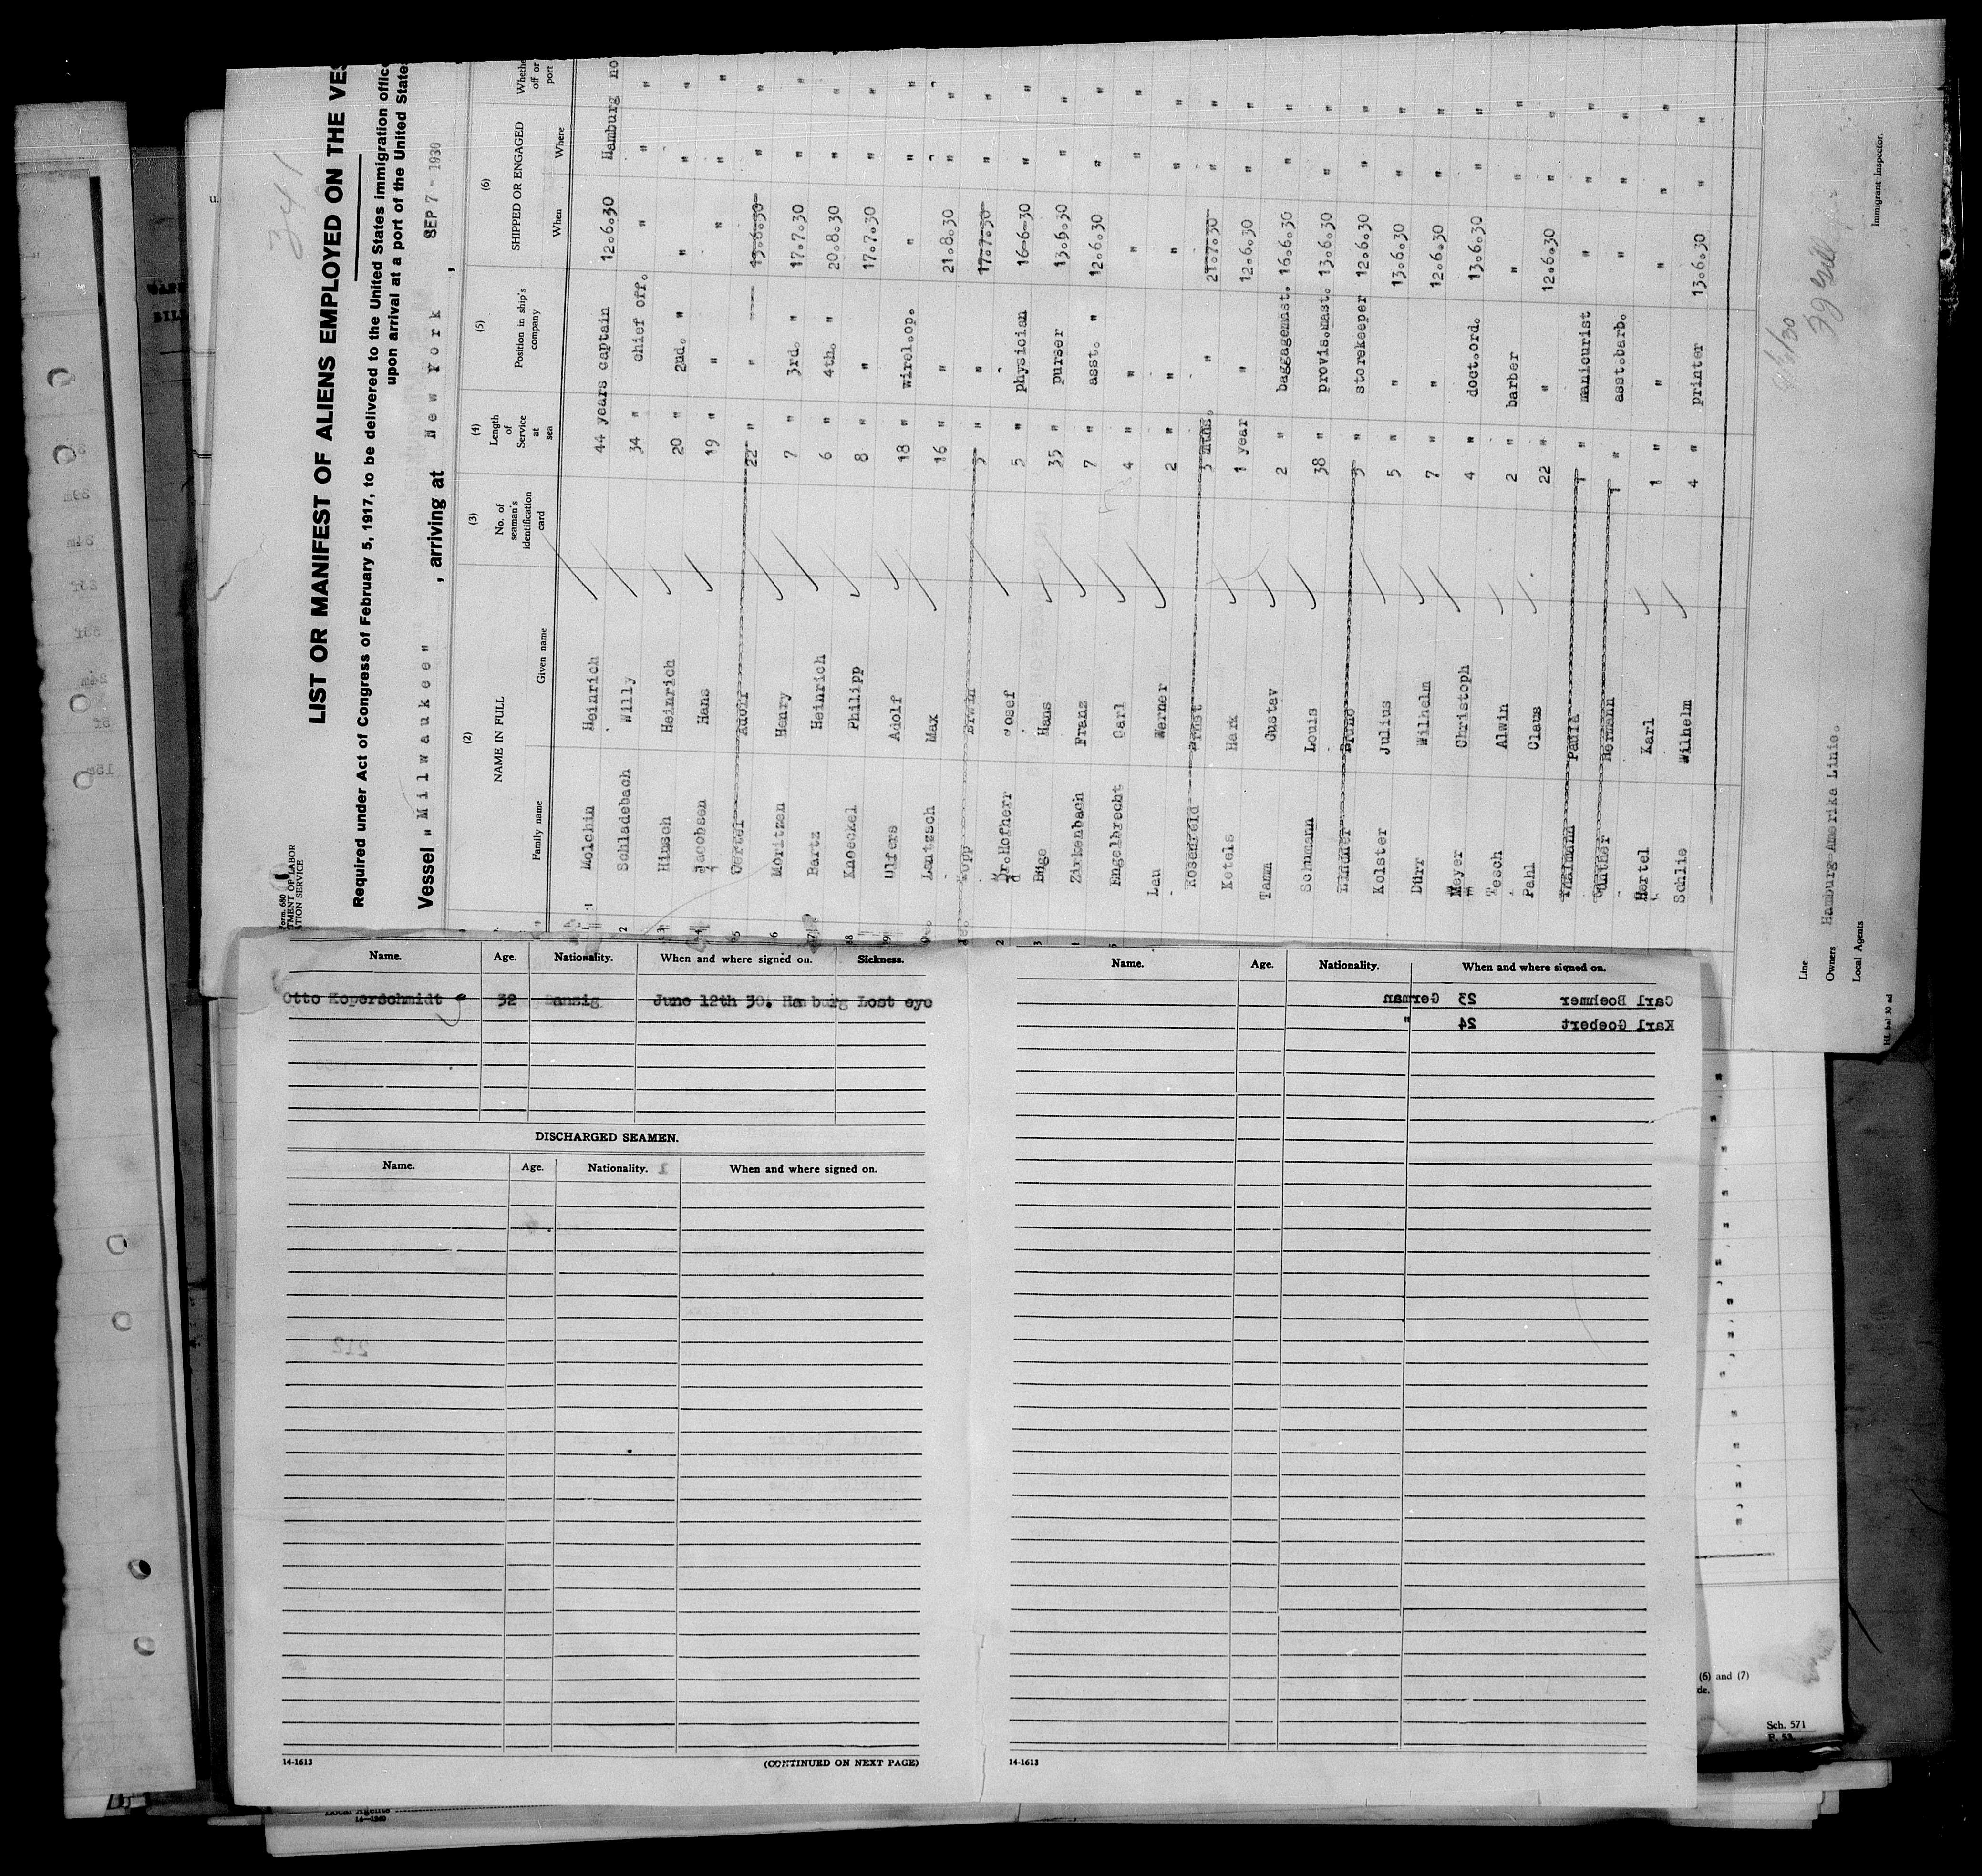 341
Form 680
TMENT OF LABOR
ATION SERVICE
LIST OR MANIFEST OF ALIENS EMPLOYED ON THE VES
Required under Act of Congress of February 5, 1917, to be delivered to the United States immigration offic
upon arrival at a port of the United State
Vessel "Milwaukee", arriving at New York, SEP 7 - 1930
(2) (3) (4) (5) (6)
NAME IN FULL No. of seaman's identification card Length of Service at sea Position in ship's company SHIPPED OR ENGAGED Whethe off or port
Family name Given name When Where
1 Molchin Heinrich 44 years captain 12.6.30 Hamburg no
2 Schladebach Willy 34 " chief off. " " "
3 Hinsch Heinrich 20 " 2nd. " " " "
4 Jacobsen Hans 19 " " " " "
5 Oertel Adolf 22 " " 13.6.30 " "
6 Moritzen Henry 7 " 3rd. " 17.7.30 " "
7 Bartz Heinrich 6 " 4th. " 20.8.30 " "
8 Knoeckel Philipp 8 " " 17.7.30 " "
9 Ulfers Adolf 18 " wirel.op. " " "
Lautzsch Max 16 " " 21.8.30 " "
Kopp Erwin 3 " " 17.7.30 " "
2 Dr.Hofherr Josef 5 " physician 16.6.30 " "
3 Büge Hans 35 " purser 13.6.30 " "
Zirkenbach Franz 7 " asst. " 12.6.30 " "
Engelbrecht Carl 4 " " " " "
Lau Werner 2 " " " " "
Rosenfeld Ernst 3 mths. " 21.7.30 " "
Ketels Hark 1 year " 12.6.30 " "
Tamm Gustav 2 " baggagemst. 16.6.30 " "
Schumann Louis 38 " provis.mast. 13.6.30 " "
Lindner Bruno 3 " storekeeper 12.6.30 " "
Kolster Julius 5 " " 13.6.30 " "
Dürr Wilhelm 7 " " 12.6.30 " "
Meyer Christoph 4 " doct.ord. 13.6.30 " "
Tesch Alwin 2 " barber " " "
Pahl Claus 22 " " 12.6.30 " "
Thälmann Paula 1 " manicurist " " "
Günther Hermann 1 " asst.barb. " " "
Hertel Karl 1 " " " " "
Schlie Wilhelm 4 " printer 13.6.30 " "
Line
Owners Hamburg-Amerika Linie.
Local Agents
Immigrant Inspector.
Name. Age. Nationality. When and where signed on. Sickness.
Otto Koperschmidt 32 Danzig June 12th 30. Hamburg Lost eye
DISCHARGED SEAMEN.
Name. Age. Nationality. When and where signed on.
212
14-1613 (CONTINUED ON NEXT PAGE)
Name. Age. Nationality. When and where signed on.
Carl Boehmer 23 German
Karl Goebert 24 "
14-1613
(6) and (7)
de.
Sch. 571
Local Agents